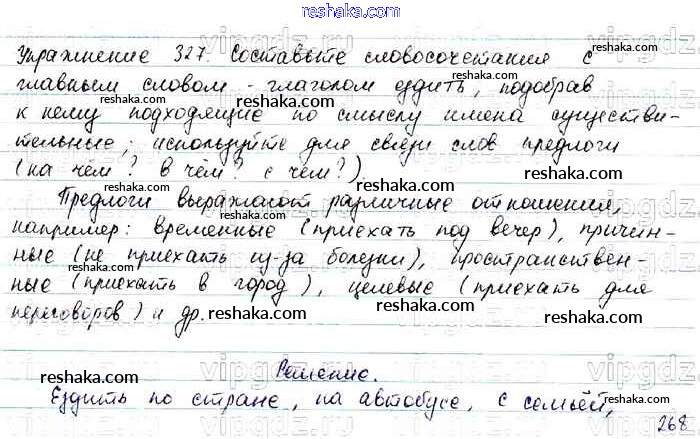 reshaka.com
Упражнение 327. Составьте словосочетания с
главным словом - глаголом ездить, подобрав
к нему подходящие по смыслу имена существи-
тельные; используйте для связи слов предлоги
(на чём? в чём? с чем?).
Предлоги выражают различные отношения,
например: временные (приехать под вечер), причин-
ные (не приехать из-за болезни), пространствен-
ные (приехать в город), целевые (приехать для
переговоров) и др.
Решение.
Ездить по стране, на автобусе, с семьёй,
268